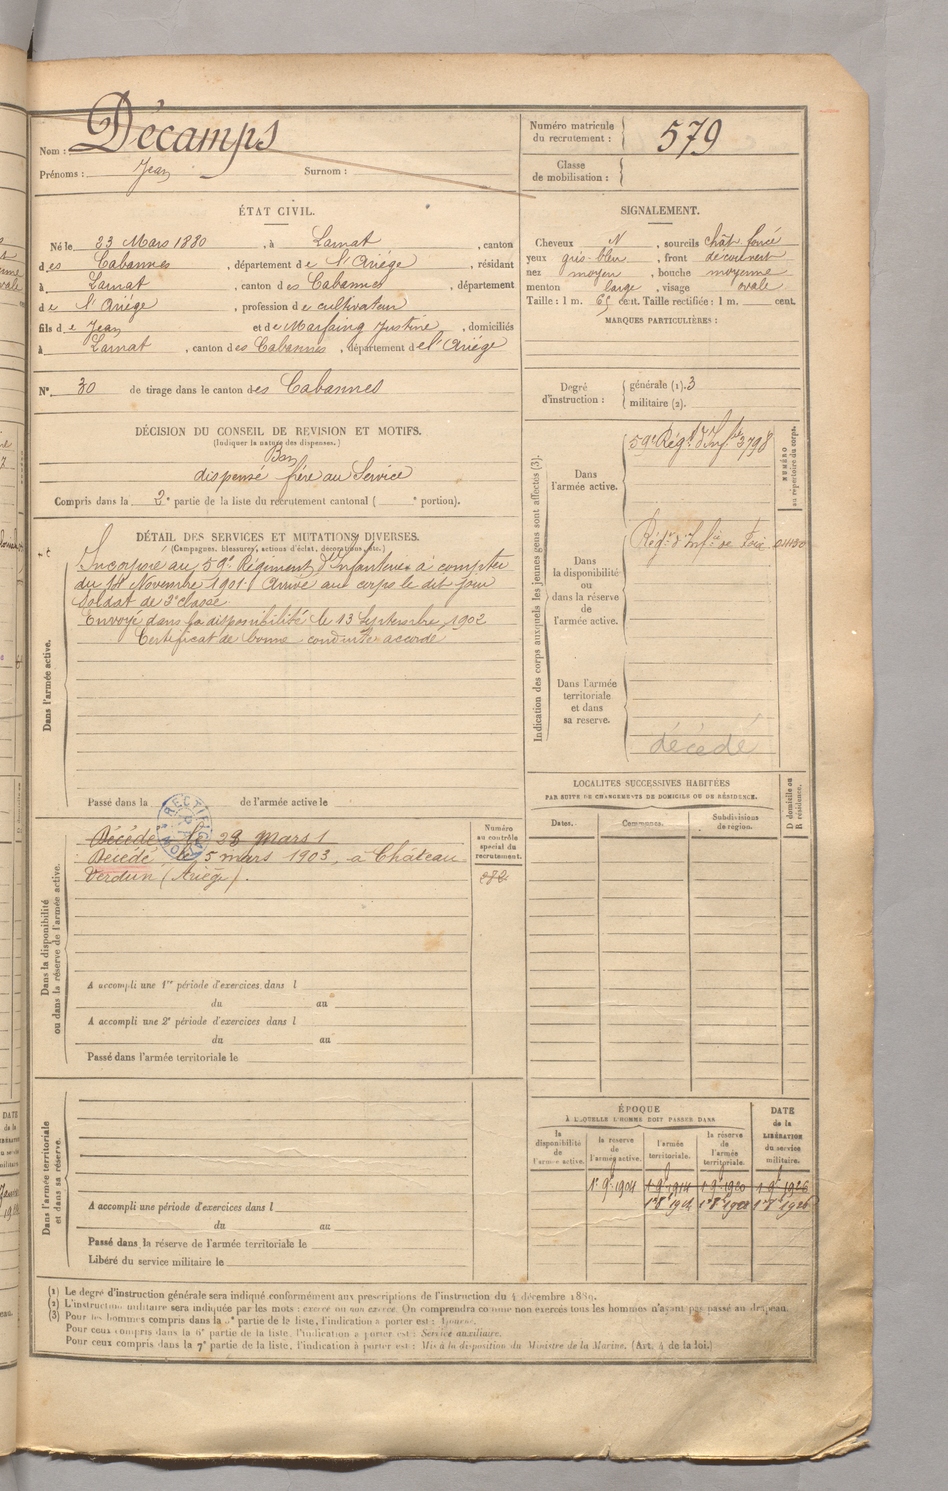 Nom : Décamps
Prénoms : Jean Surnom :
Numéro matricule
du recrutement : 579
Classe
de mobilisation :
ÉTAT CIVIL.
Né le 23 Mars 1880, à Larnat, canton
des Cabannes, département de l'Ariége, résidant
à Larnat, canton des Cabannes, département
de l'Ariége, profession de cultivateur
fils de Jean et de Marfaing Justine, domiciliés
à Larnat, canton des Cabannes, département de l'Ariége
N° 30 de tirage dans le canton des Cabannes
SIGNALEMENT.
Cheveux N, sourcils chât. foncé
yeux gris-bleu, front découvert
nez moyen, bouche moyenne
menton large, visage ovale
Taille : 1 m. 65 cent. Taille rectifiée : 1 m. cent.
MARQUES PARTICULIÈRES :
Degré
d'instruction :
générale (1). 3
militaire (2).
DÉCISION DU CONSEIL DE REVISION ET MOTIFS.
(Indiquer la nature des dispenses.)
Bon
dispensé frère au Service
Compris dans la 2e partie de la liste du recrutement cantonal ( e portion).
DÉTAIL DES SERVICES ET MUTATIONS DIVERSES.
(Campagnes, blessures, actions d'éclat, décorations, etc.)
Dans l'armée active.
Incorporé au 59e Régiment d'Infanterie à compter
du 14 Novembre 1901. Arrivé au corps le dit jour
Soldat de 2e classe.
Envoyé dans la disponibilité le 13 Septembre 1902
Certificat de bonne conduite accordé
Passé dans la de l'armée active le
Indication des corps auxquels les jeunes gens sont affectés (3).
NUMÉRO
au répertoire du corps.
Dans
l'armée active.
59e Régt d'Infie 3798
Dans
la disponibilité
ou
dans la réserve
de
l'armée active.
Régt d'Infie de Foix
Dans l'armée
territoriale
et dans
sa reserve.
décédé
LOCALITES SUCCESSIVES HABITÉES
PAR SUITE DE CHANGEMENTS DE DOMICILE OU DE RÉSIDENCE.
D domicile ou
R résidence.
Dates. Communes. Subdivisions
de region.
RECTIFICATION
Dans la disponibilité
ou dans la réserve de l'armée active.
Numéro
au contrôle
spécial du
recrutement.
Décédé le 23 mars 1
Décédé le 5 mars 1903, à Château
Verdun (Ariége).
272
A accompli une 1re période d'exercices dans l
du au
A accompli une 2e période d'exercices dans l
du au
Passé dans l'armée territoriale le
Dans l'armée territoriale
et dans sa réserve.
A accompli une période d'exercices dans l
du au
Passé dans la réserve de l'armée territoriale le
Libéré du service militaire le
ÉPOQUE
À LAQUELLE L'HOMME DOIT PASSER DANS
DATE
de la
LIBÉRATION
du service
militaire.
la
disponibilité
de
l'armée active.
la réserve
de
l'armée active.
l'armée
territoriale.
la réserve
de
l'armée
territoriale.
1er 9e 1904 1 9e 1914 1 9e 1920 1 9e 1926
(1) Le degré d'instruction générale sera indiqué conformément aux prescriptions de l'instruction du 4 décembre 1889.
(2) L'instruction militaire sera indiquée par les mots : exercé ou non exercé. On comprendra comme non exercés tous les hommes n'ayant pas passé au drapeau.
(3) Pour les hommes compris dans la e partie de la liste, l'indication à porter est :
Pour ceux compris dans la 6e partie de la liste, l'indication à porter est : Service auxiliaire.
Pour ceux compris dans la 7e partie de la liste, l'indication à porter est : Mis à la disposition du Ministre de la Marine. (Art. 4 de la loi.)